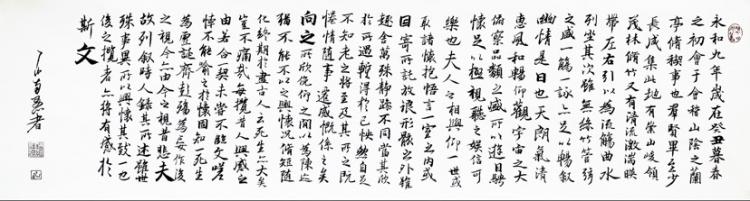 永和九年歲在癸丑暮春
之初會于會稽山陰之蘭
亭脩稧事也羣賢畢至少
長咸集此地有崇山峻領
茂林脩竹又有清流激湍映
帶左右引以為流觴曲水
列坐其次雖無絲竹管弦
之盛一觴一詠亦足以暢敘
幽情是日也天朗氣清
惠風和暢仰觀宇宙之大
俯察品類之盛所以遊目騁
懷足以極視聽之娛信可
樂也夫人之相與俯仰一世或
取諸懷抱悟言一室之內或
因寄所託放浪形骸之外雖
趣舍萬殊靜躁不同當其欣
於所遇暫得於己快然自足
不知老之將至及其所之既
惓情隨事遷感慨係之矣
向之所欣俛仰之間以為陳迹
猶不能不以之興懷況脩短隨
化終期於盡古人云死生亦大矣
豈不痛哉每攬昔人興感之
由若合一契未嘗不臨文嗟
悼不能喻之於懷固知一死生
為虛誕齊彭殤為妄作後
之視今亦由今之視昔悲夫
故列敘時人錄其所述雖世
殊事異所以興懷其致一也
後之攬者亦將有感於
斯文